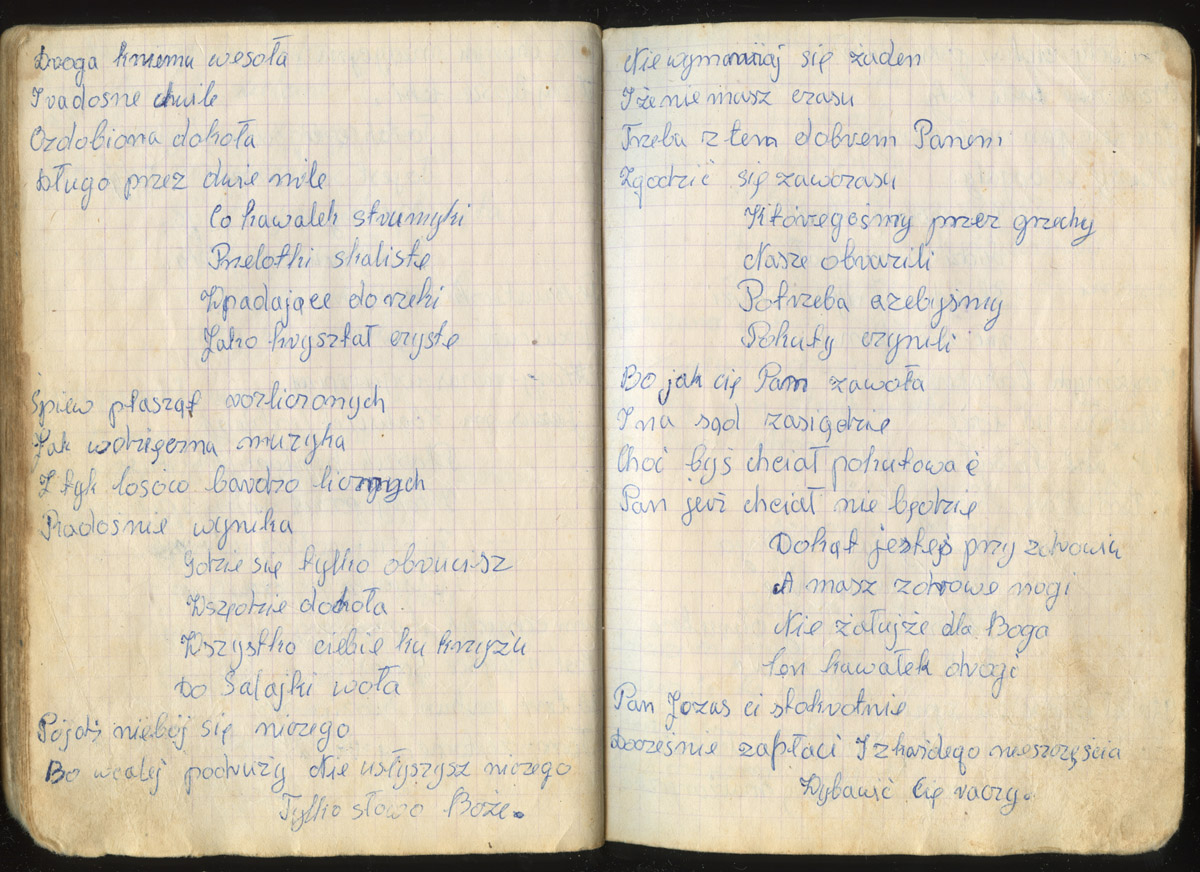 Droga kniemu wesoła
I radosne chwile
Ozdobiona dokoła
Długo przez dwie mile
Co kawałek strumyki
Przelotki skaliste
Wpadające do rzeki
Jako kryształ czyste
Śpiew ptasząt rozlicznych
Jak wdzięczna muzyka
Z tyk losów bardzo licznych
Radośnie wynika
Gdzie się tylko obrucisz
Wszędzie dokoła
Wszystko ciebie ku krzyżu
Do Salajki woła
Pójdź niebój się niczego
Bo wcałej podruży Nie usłyszysz niczego
Tylko słowo Boże.
Niewymawiaj się żaden
I że nie masz czasu
Trzeba z tem dobrem Panem
Zgodzić się zawczasu
Któregośmy przez grzechy
Nasze obrazili
Potrzeba azebyśmy
Pokuty czynili
Bo jak cię Pan zawoła
I na sąd zasiędzie
Choć byś chciał pokutować
Pan jerz chciał nie będzie
Dokąt jesteś przy zdrowiu
A masz zdrowe nogi
Nie żałujże dla Boga
Ten kawałek drogi
Pan Jezus ci stokrotnie
Docześnie zapłaci I zkażdego nieszczęścia
Wybawić Cię raczy.